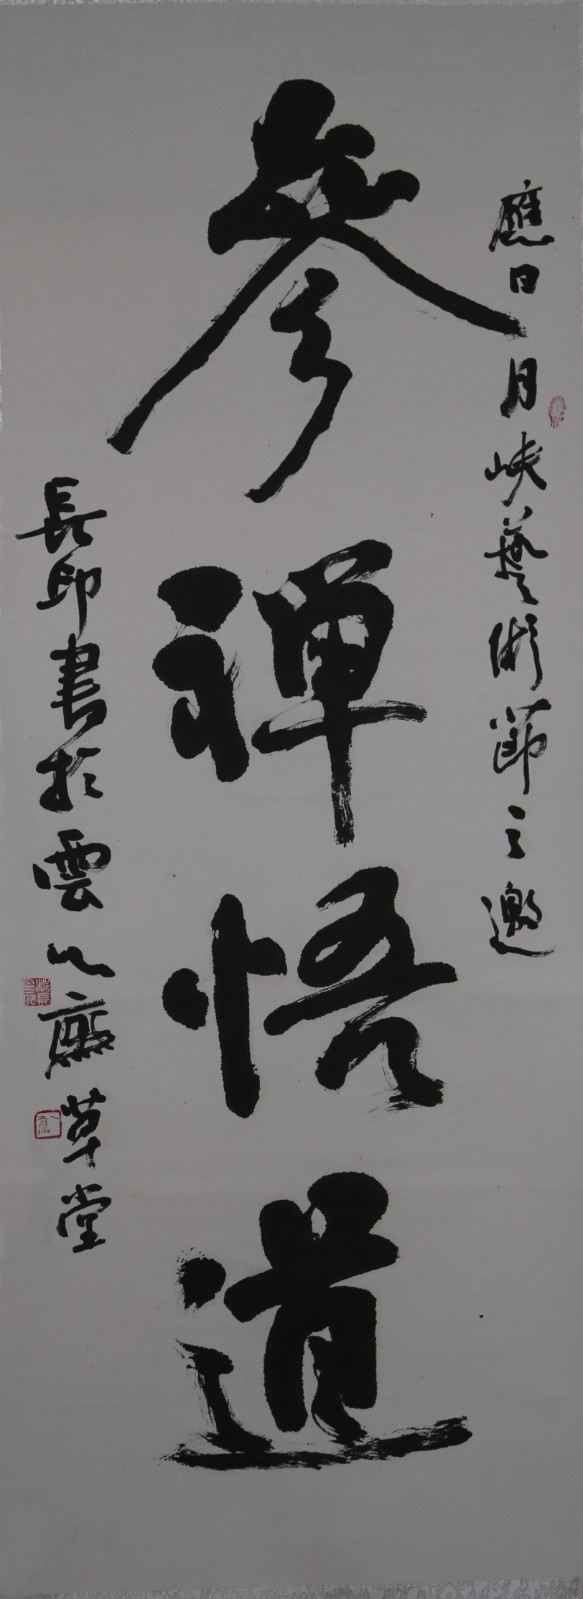 應日月峽藝術節之邀
參禪悟道
長印書於雲心齋草堂